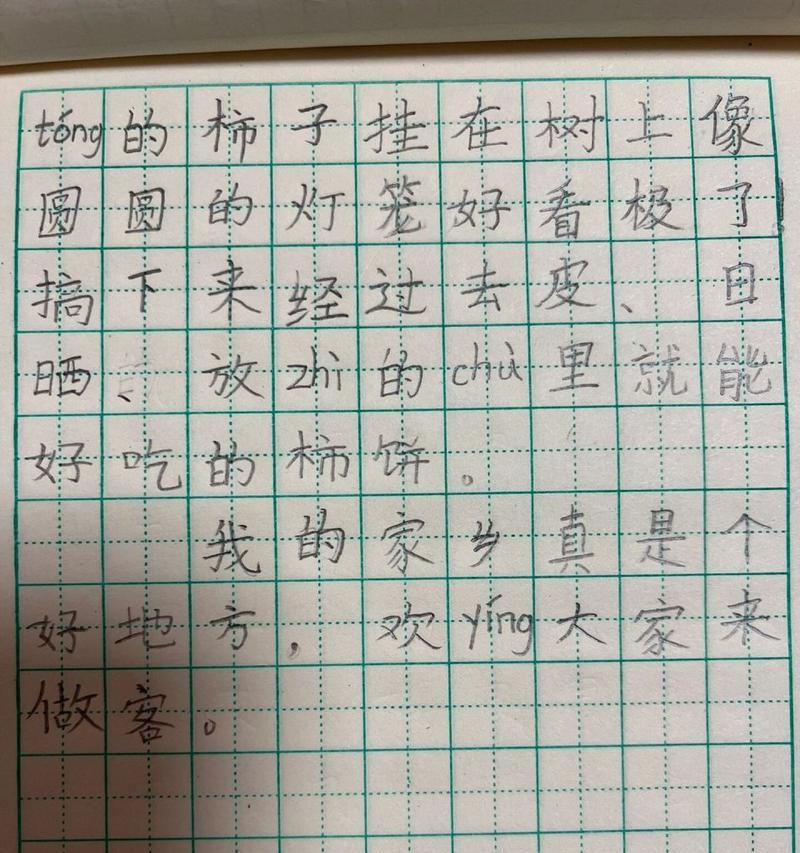 tóng的柿子挂在树上像
圆圆的灯笼好看极了
搞下来经过去皮、日
晒、放zhì的chù里就能
好吃的柿饼。
我的家乡真是个
好地方，欢yíng大家来
做客。